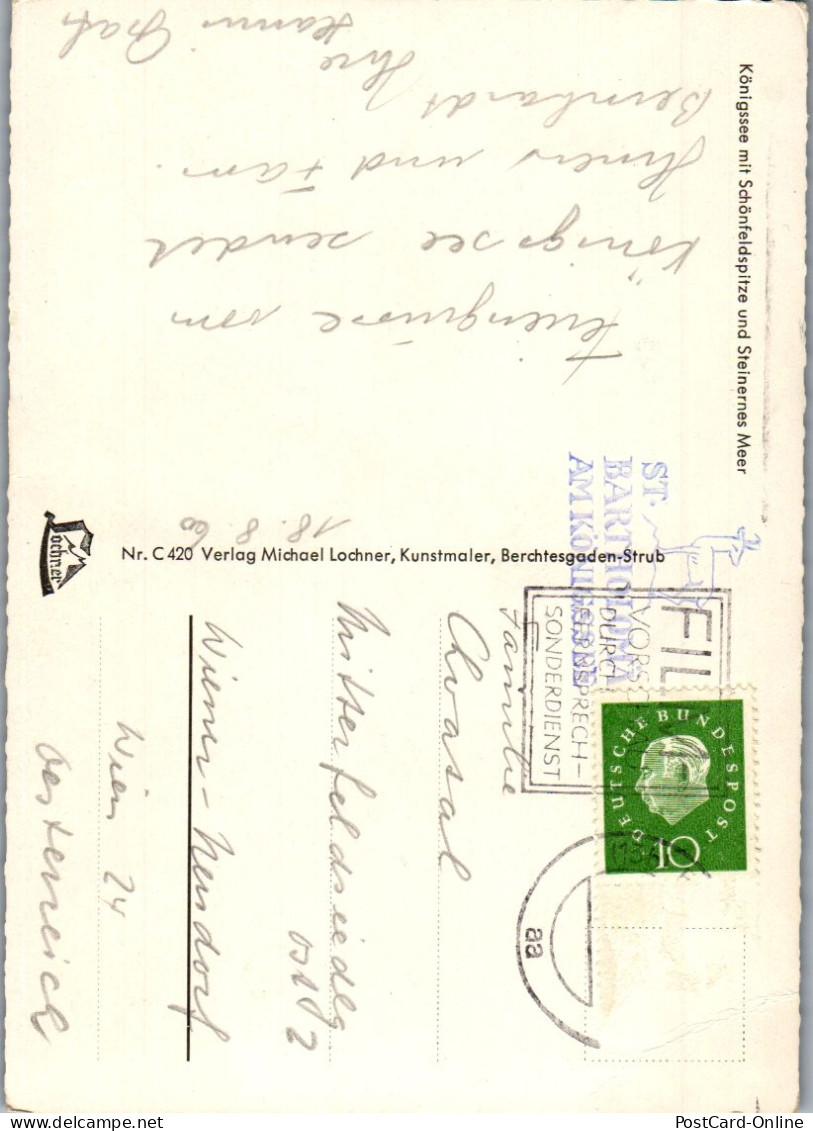 Königssee mit Schönfeldspitze und Steinernes Meer
18. 8. 60
Feriengrüsse vom
Königssee sendet
Ihnen und Fam.
Bernhardt Ihre
Hanni Graf
Lochner
Nr. C 420 Verlag Michael Lochner, Kunstmaler, Berchtesgaden-Strub
ST.
BARTHOLOMÄ
AM KÖNIGSSEE
FIL
VORS
DURCH
FERNSPRECH-
SONDERDIENST
DEUTSCHE BUNDESPOST
10
aa
Familie
Chvasal
Mitterfeldsiedlg
Ost 12
Wiener-Neudorf
Wien 24
Oesterreich
PostCard-Online
PostCard-Online.com